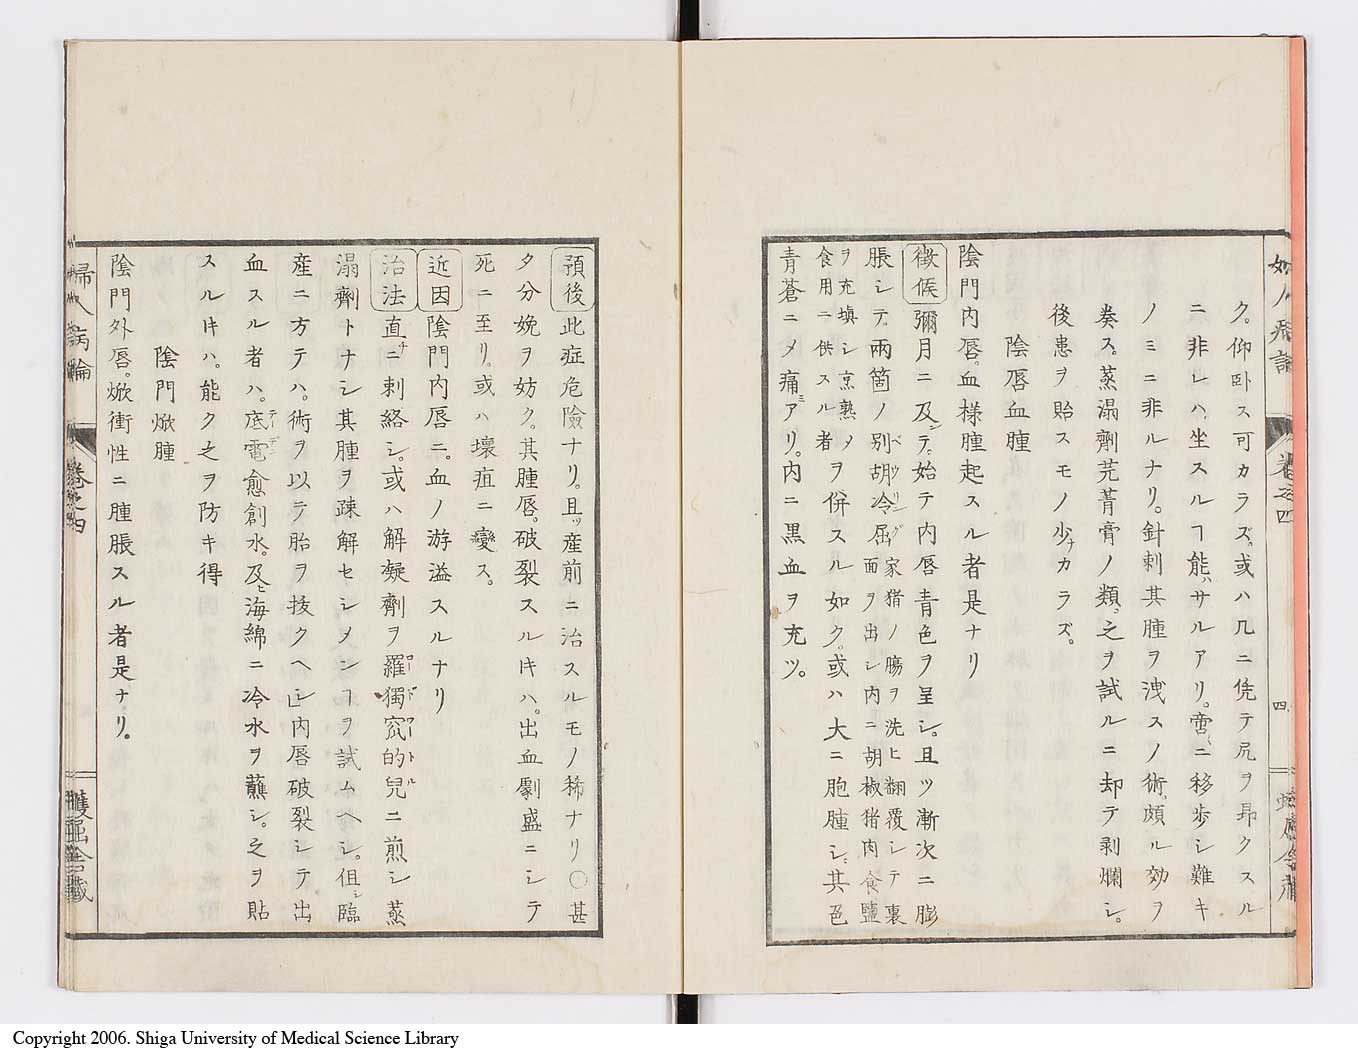 ク。仰卧ス可カラズ。或ハ几ニ凭テ尻ヲ昂クスル
ニ非レハ坐スルヿ能ハサルアリ。啻ニ移歩シ難キ
ノミニ非ルナリ。針刺其腫ヲ洩スノ術。頗ル効ヲ
奏ス。蒸溻劑芫菁膏ノ類。之ヲ試ルニ却テ剥爛シ。
後患ヲ貽スモノ少ナカラズ。
陰唇血腫
陰門内唇。血様腫起スル者是ナリ
徴候 彌月ニ及テ。始テ内唇青色ヲ呈シ。且ツ漸次ニ膨
脹シテ。兩箇ノ別胡冷屈家猪ノ腸ヲ洗ヒ翻覆シテ裏面ヲ出シ内ニ胡椒猪肉食鹽
ヲ充填シ烹熟ノ食用ニ供スル者ヲ併スル如ク。或ハ大ニ胞腫シ其色
青蒼ニメ痛ミアリ。内ニ黒血ヲ充ツ。
四
預後 此症危險ナリ。且ッ産前ニ治スルモノ稀ナリ○甚
タ分娩ヲ妨ク。其腫唇。破裂スルキハ。出血劇盛ニシテ
死ニ至リ。或ハ壞疽ニ變ス。
近因 陰門内唇ニ。血ノ游溢スルナリ
治法 直チニ刺絡シ。或ハ解凝劑ヲ羅獨究的兒ニ煎シ蒸
溻劑トナシ其腫ヲ疎解セシメンヿヲ試ムヘシ。但シ臨
産ニ方テハ。術ヲ以テ胎ヲ抜クヘシ」内唇破裂シテ出
血スル者ハ。底電愈創水。及ヒ海綿ニ冷水ヲ蘸シ。之ヲ貼
スルキハ。能ク之ヲ防キ得
陰門焮腫
陰門外唇。焮衝性ニ腫脹スル者是ナリ。
婦人病論
卷之四
Copyright 2006. Shiga University of Medical Science Library